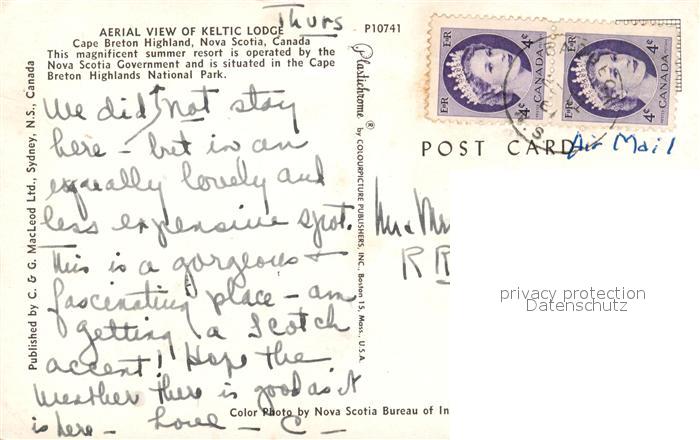 Thurs
AERIAL VIEW OF KELTIC LODGE
Cape Breton Highland, Nova Scotia, Canada
This magnificent summer resort is operated by the
Nova Scotia Government and is situated in the Cape
Breton Highlands National Park.
P10741
We did not stay
here - but in an
equally lovely and
less expensive spot.
This is a gorgeous +
fascinating place - am
getting a Scotch
accent! Hope the
weather there is good as it
is here - Love - C -
Published by C. & G. MacLeod Ltd., Sydney, N.S., Canada
Plastichrome ® by COLOURPICTURE PUBLISHERS, INC., Boston 15, Mass., U.S.A.
Color Photo by Nova Scotia Bureau of In
E II R
4c
4c
CANADA
POSTES
E II R
4c
4c
CANADA
POSTES
N.S.
POST CARD
Air Mail
R R
privacy protection
Datenschutz